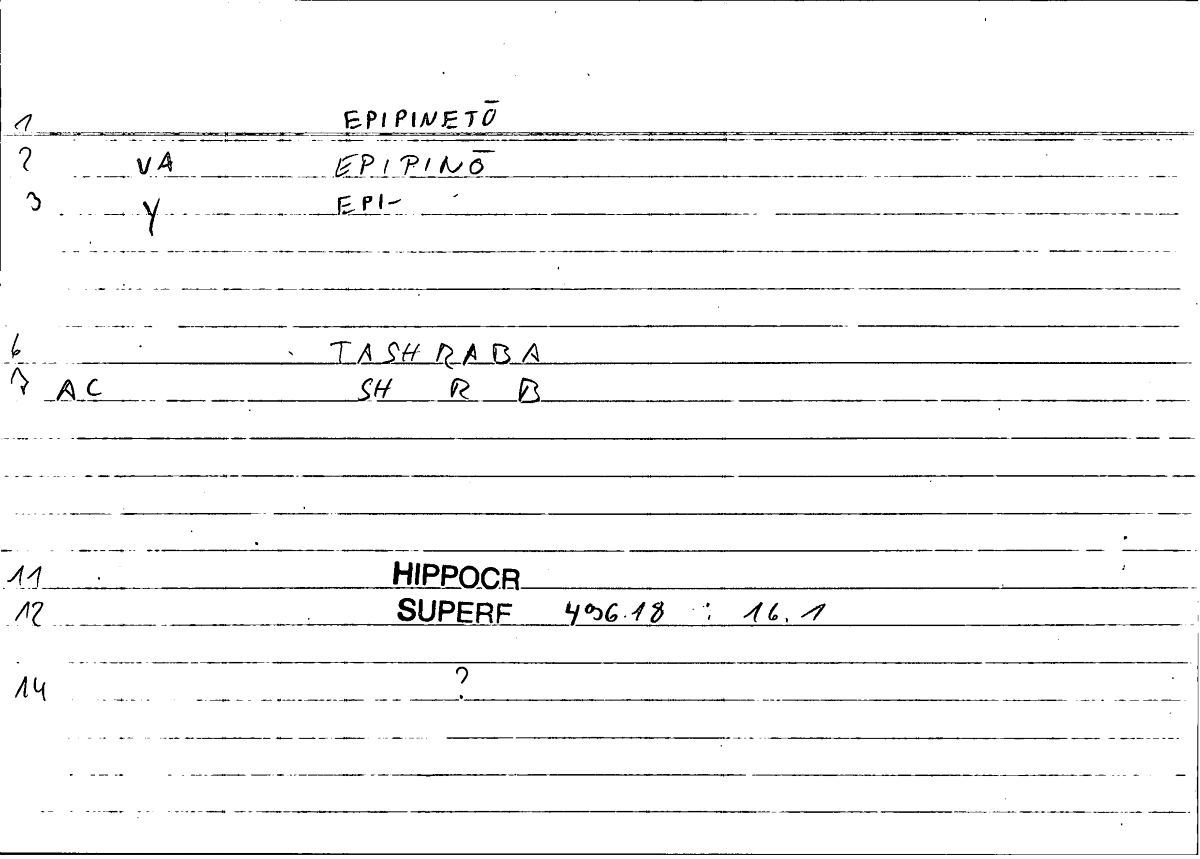 1 EPIPINETŌ
2 VA EPIPINŌ
3 Y EPI-
6 TASHRABA
7 AC SH R B
11 HIPPOCR
12 SUPERF 496.18 : 16.1
14 ?